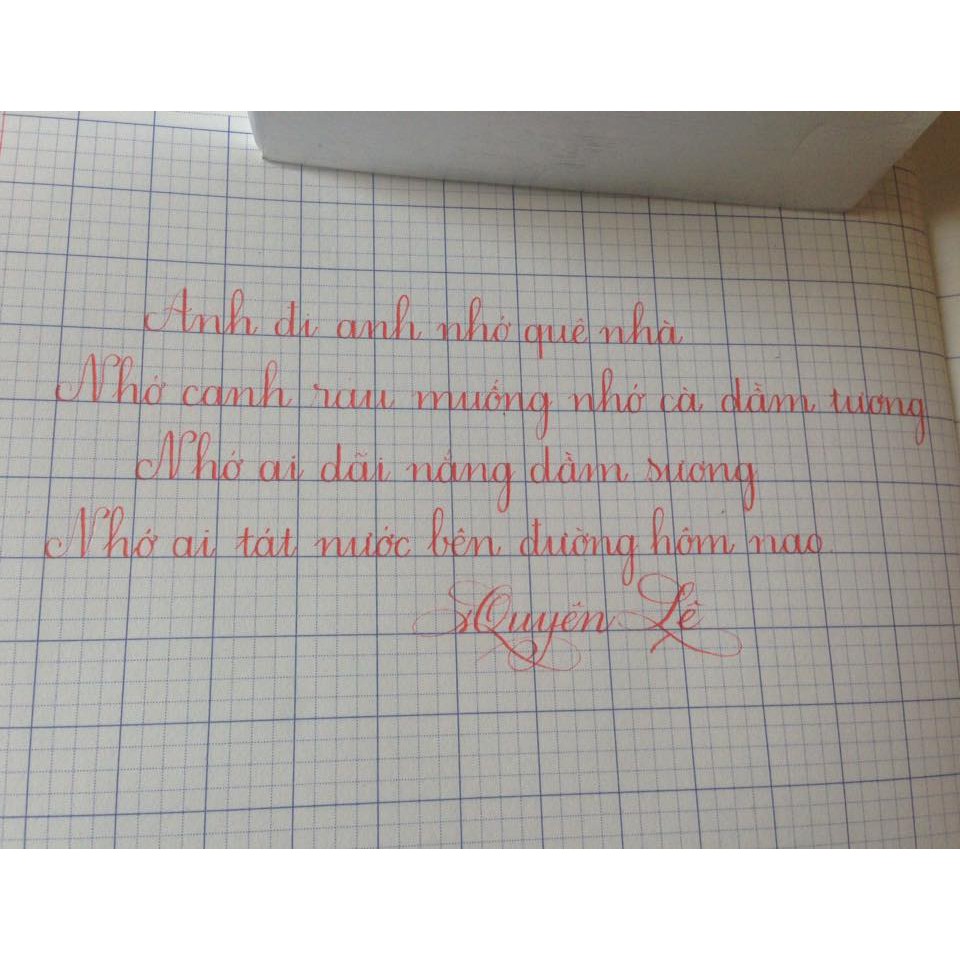 Anh đi anh nhớ quê nhà
Nhớ canh rau muống nhớ cà dầm tương
Nhớ ai dãi nắng dầm sương
Nhớ ai tát nước bên đường hôm nao
Quyên Lê